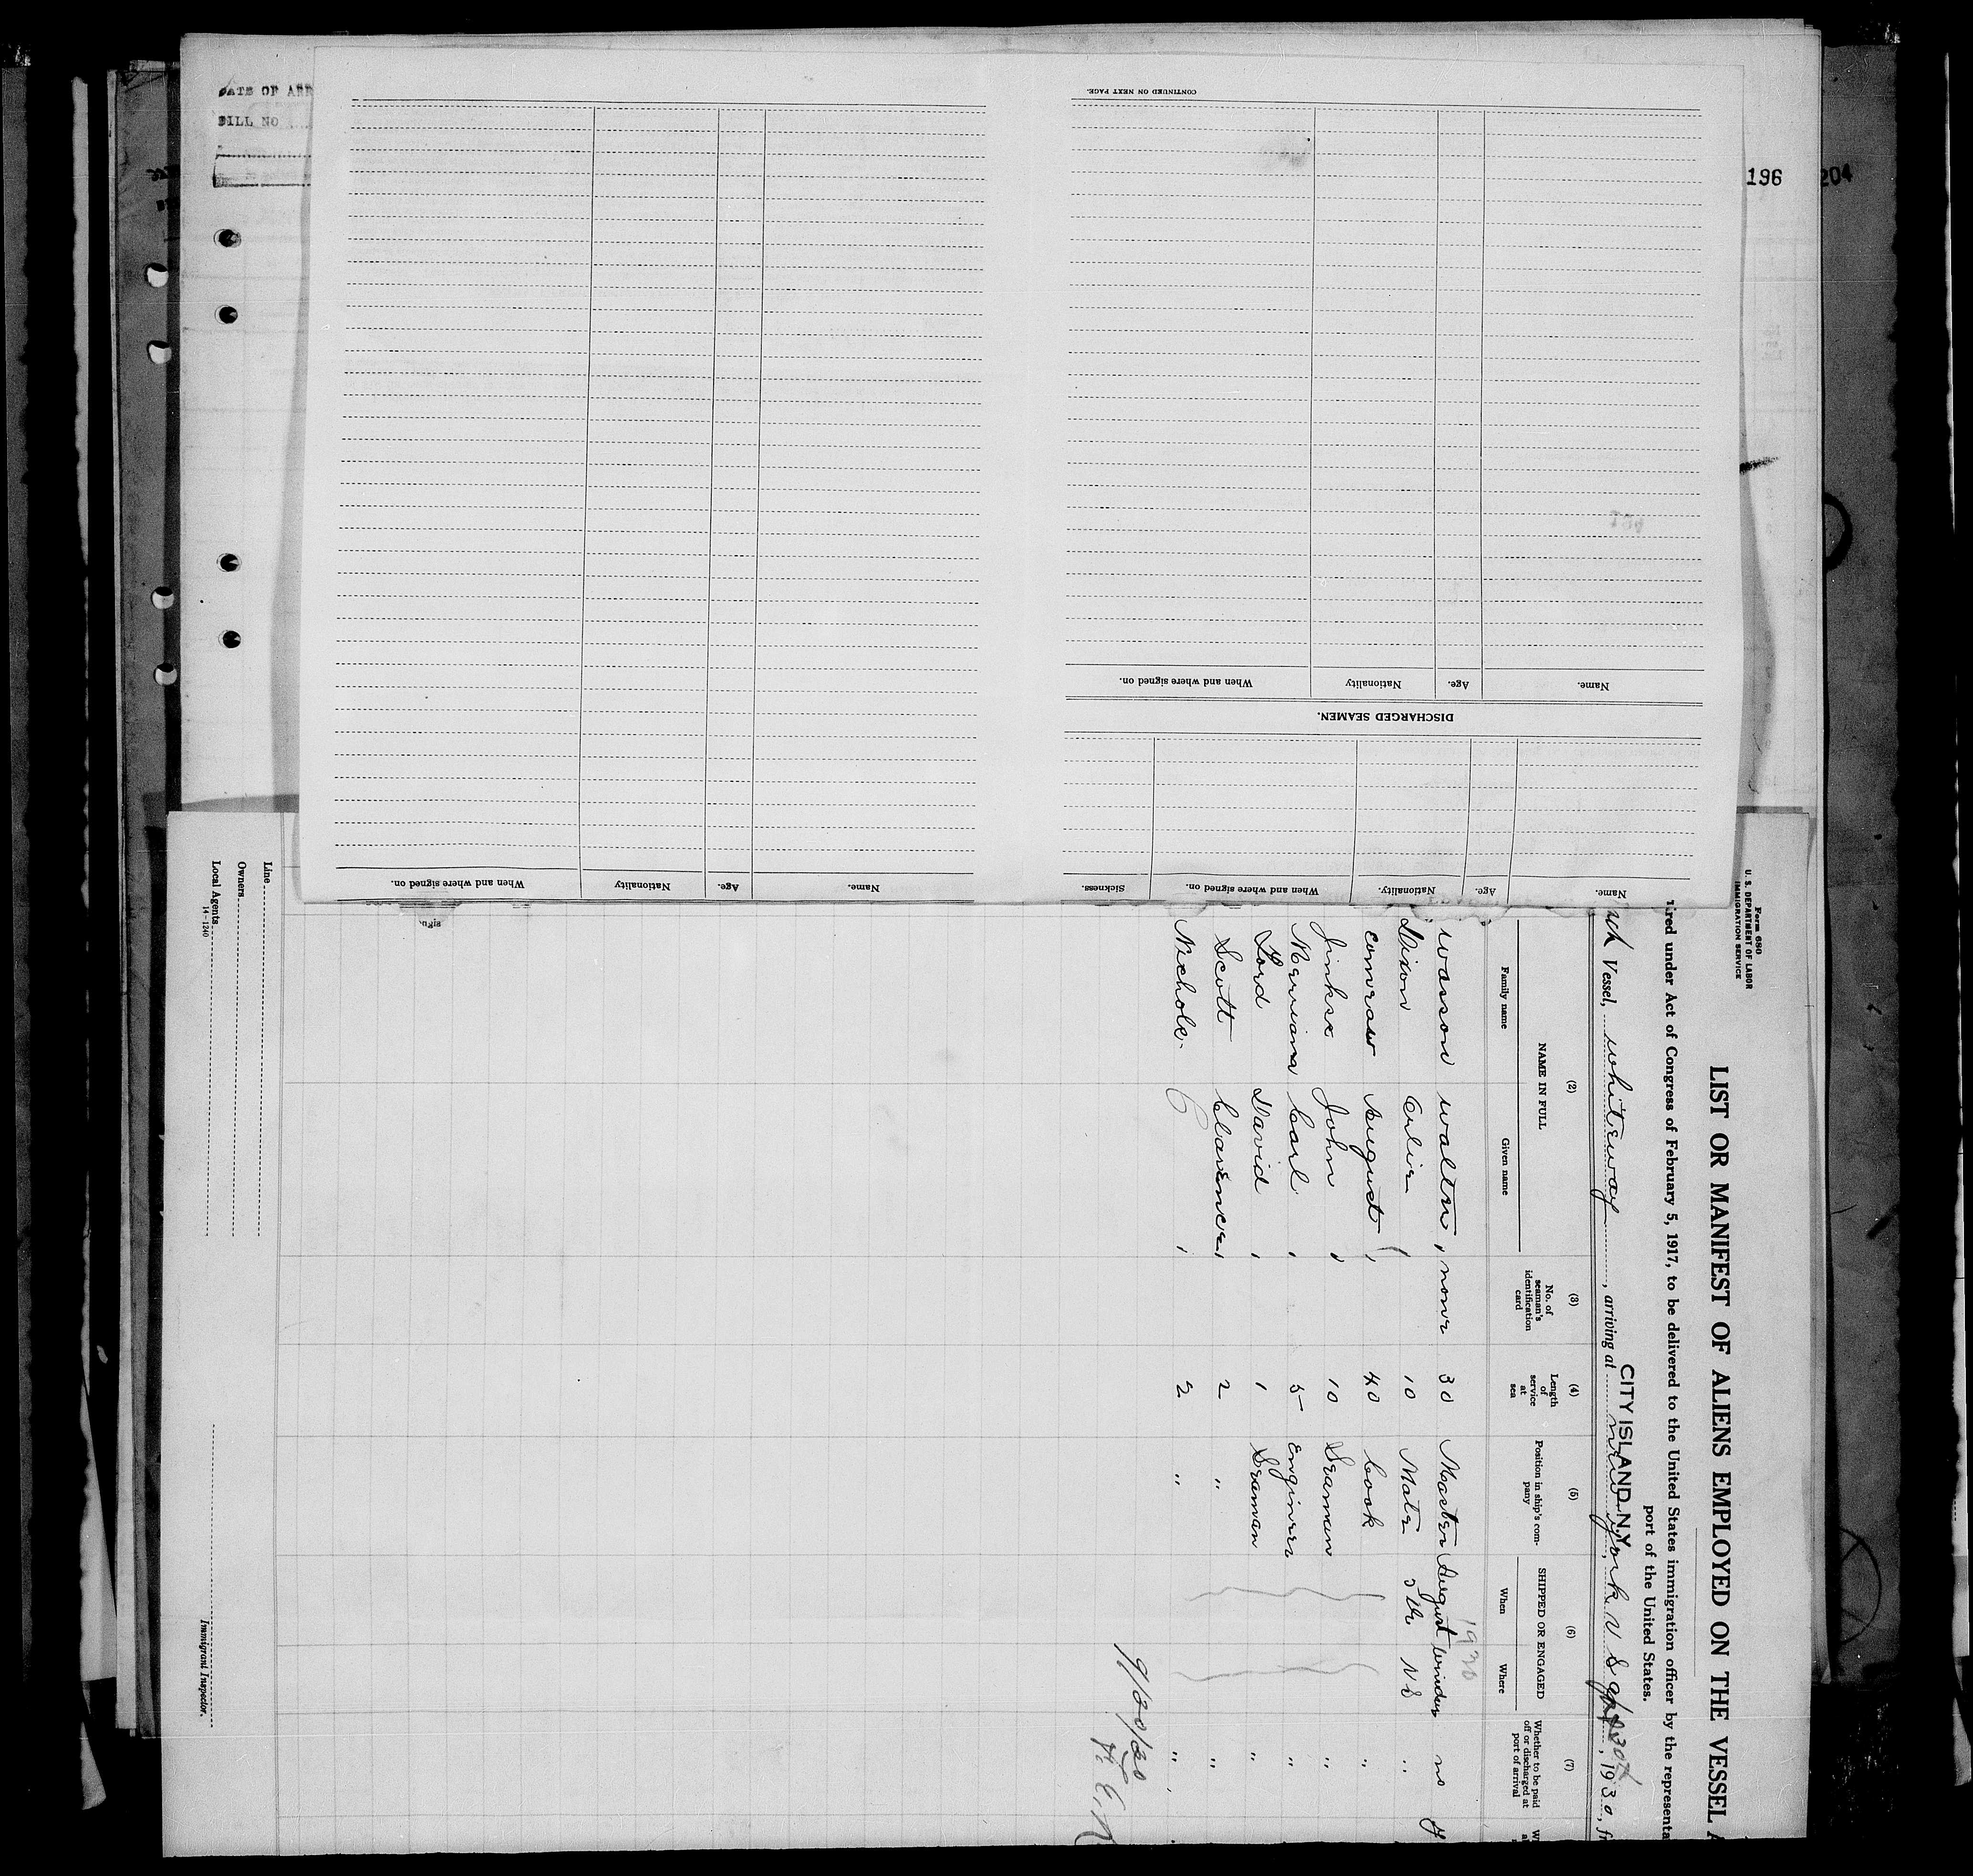 DATE OF ARR
BILL NO
196
204
CONTINUED ON NEXT PAGE.
Name.
Age.
Nationality
When and where signed on.
DISCHARGED SEAMEN.
Name.
Age.
Nationality.
When and where signed on.
Sickness.
Name.
Age.
Nationality
When and where signed on.
Form 680
U. S. DEPARTMENT OF LABOR
IMMIGRATION SERVICE
LIST OR MANIFEST OF ALIENS EMPLOYED ON THE VESSEL A
ired under Act of Congress of February 5, 1917, to be delivered to the United States immigration officer by the representa
port of the United States.
CITY ISLAND N.Y.
Vessel, whiteway, arriving at new york U S, 1930, fr
(2) (3) (4) (5) (6) (7)
NAME IN FULL
Family name Given name
No. of seaman's identification card
Length of service at sea
Position in ship's company
SHIPPED OR ENGAGED
When Where
Whether to be paid off or discharged at port of arrival
1930
wasson walter none 30 Master August Windsor no
Dixon 10 Mate N S "
conraw August 40 Cook "
Jinks John 10 Seaman "
Merriam Carl 5 Engineer "
Lord David 1 Seaman "
Scott Clarence 2 " "
Nichols C 2 " "
9/30/30
Line
Owners
Local Agents
14-1240
Immigrant Inspector.